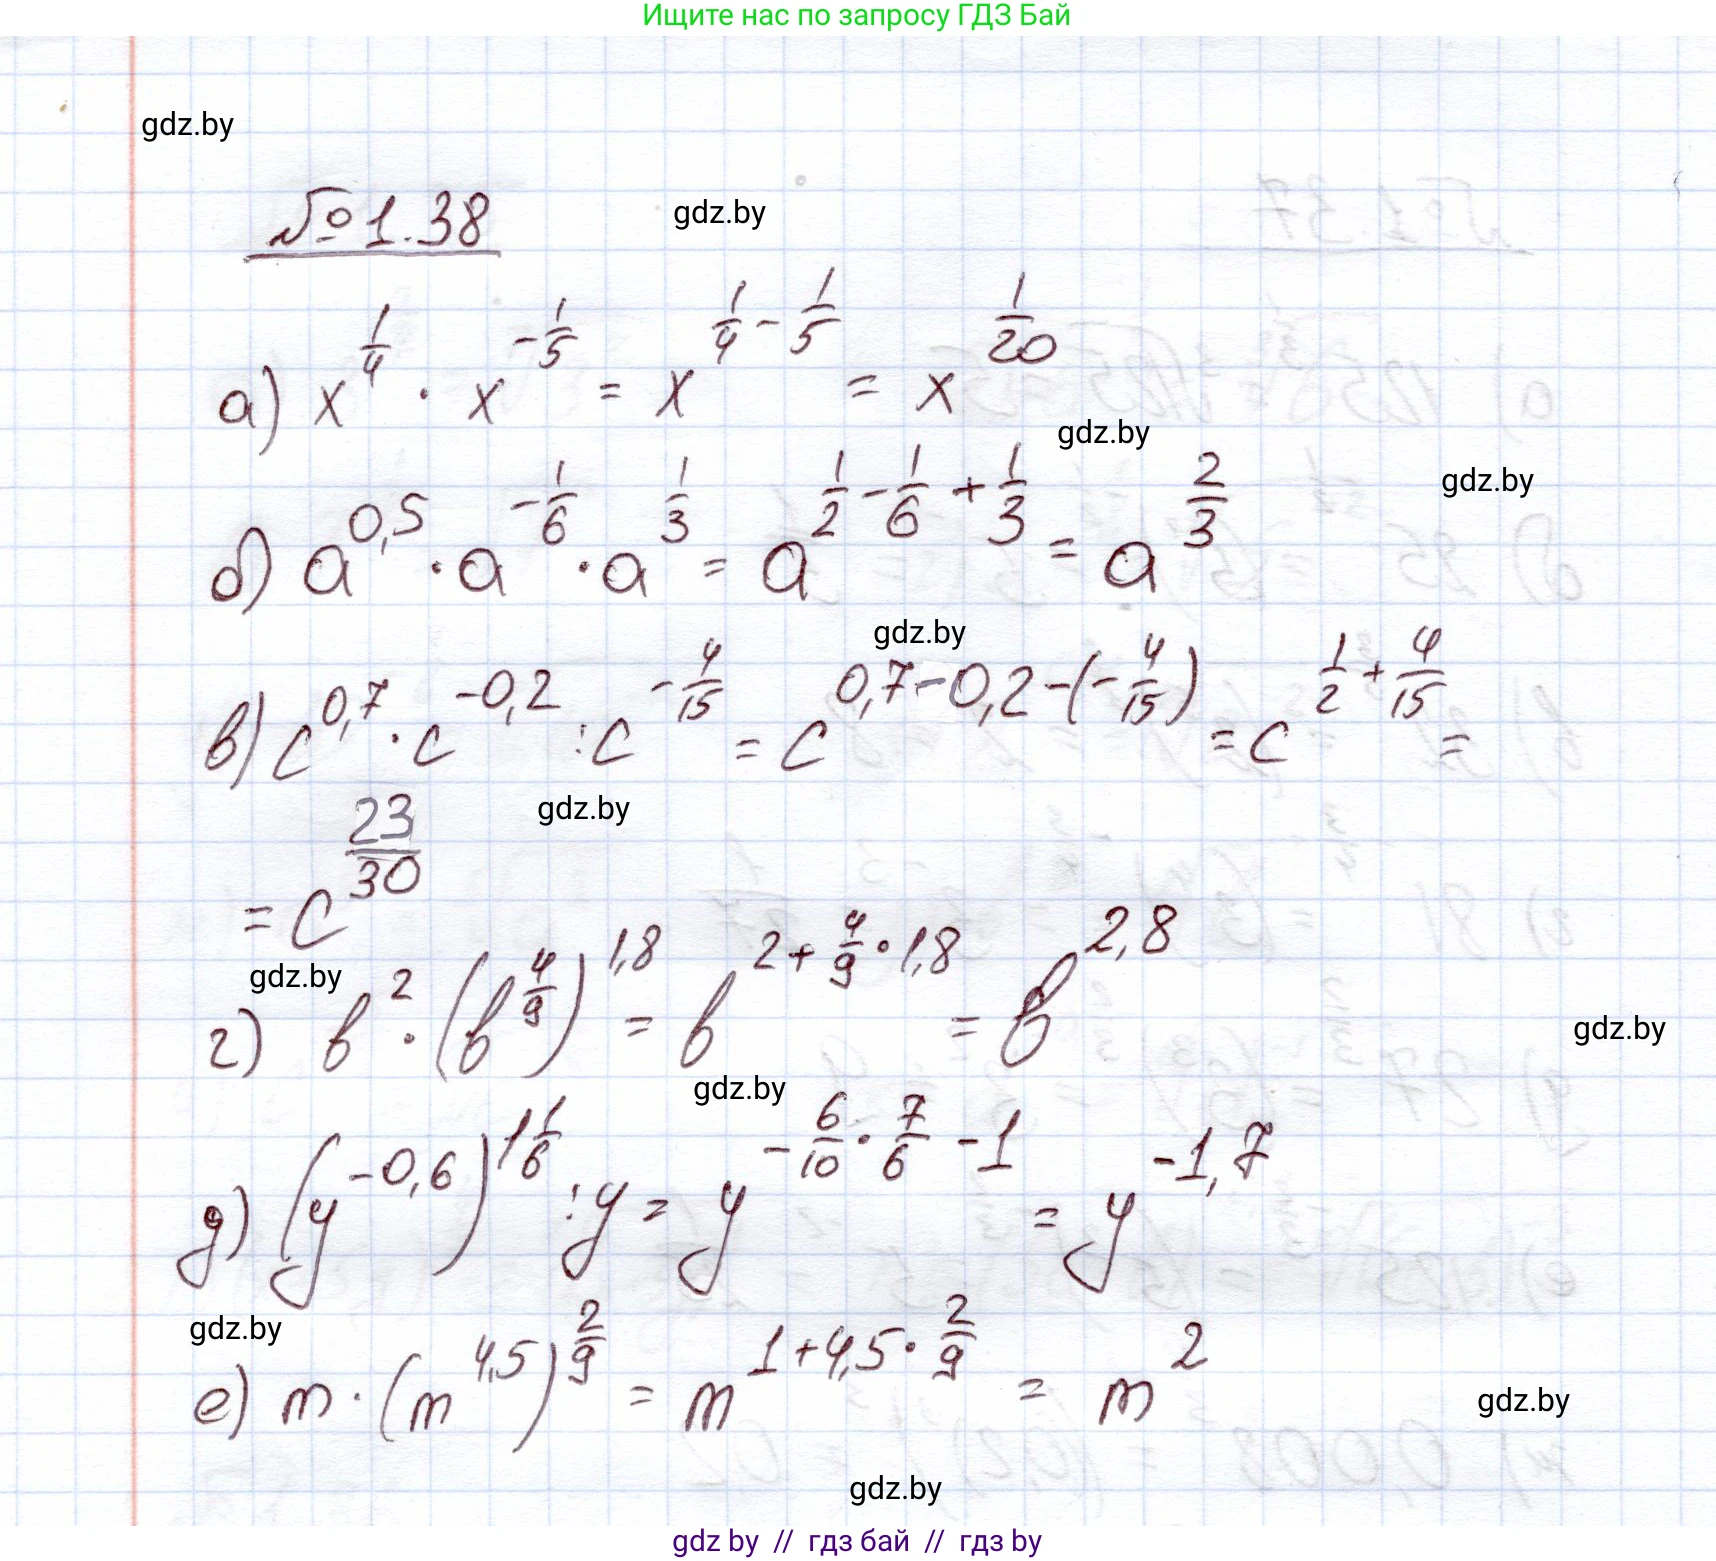 Ищите нас по запросу ГДЗ Бай
gdz.by
№1.38
gdz.by
а) x^{1/4} · x^{-1/5} = x^{1/4 - 1/5} = x^{1/20}
gdz.by
gdz.by
б) a^{0,5} · a^{-1/6} · a^{1/3} = a^{1/2 - 1/6 + 1/3} = a^{2/3}
gdz.by
в) c^{0,7} · c^{-0,2} : c^{-4/15} = c^{0,7-0,2-(-4/15)} = c^{1/2 + 4/15} =
gdz.by
= c^{23/30}
gdz.by
г) b^{2} · (b^{4/9})^{1,8} = b^{2 + 4/9 · 1,8} = b^{2,8}
gdz.by
gdz.by
д) (y^{-0,6})^{1 1/6} : y = y^{-6/10 · 7/6 - 1} = y^{-1,7}
gdz.by
е) m · (m^{4,5})^{2/9} = m^{1+4,5 · 2/9} = m^{2}
gdz.by
gdz.by
gdz by // гдз бай // гдз by